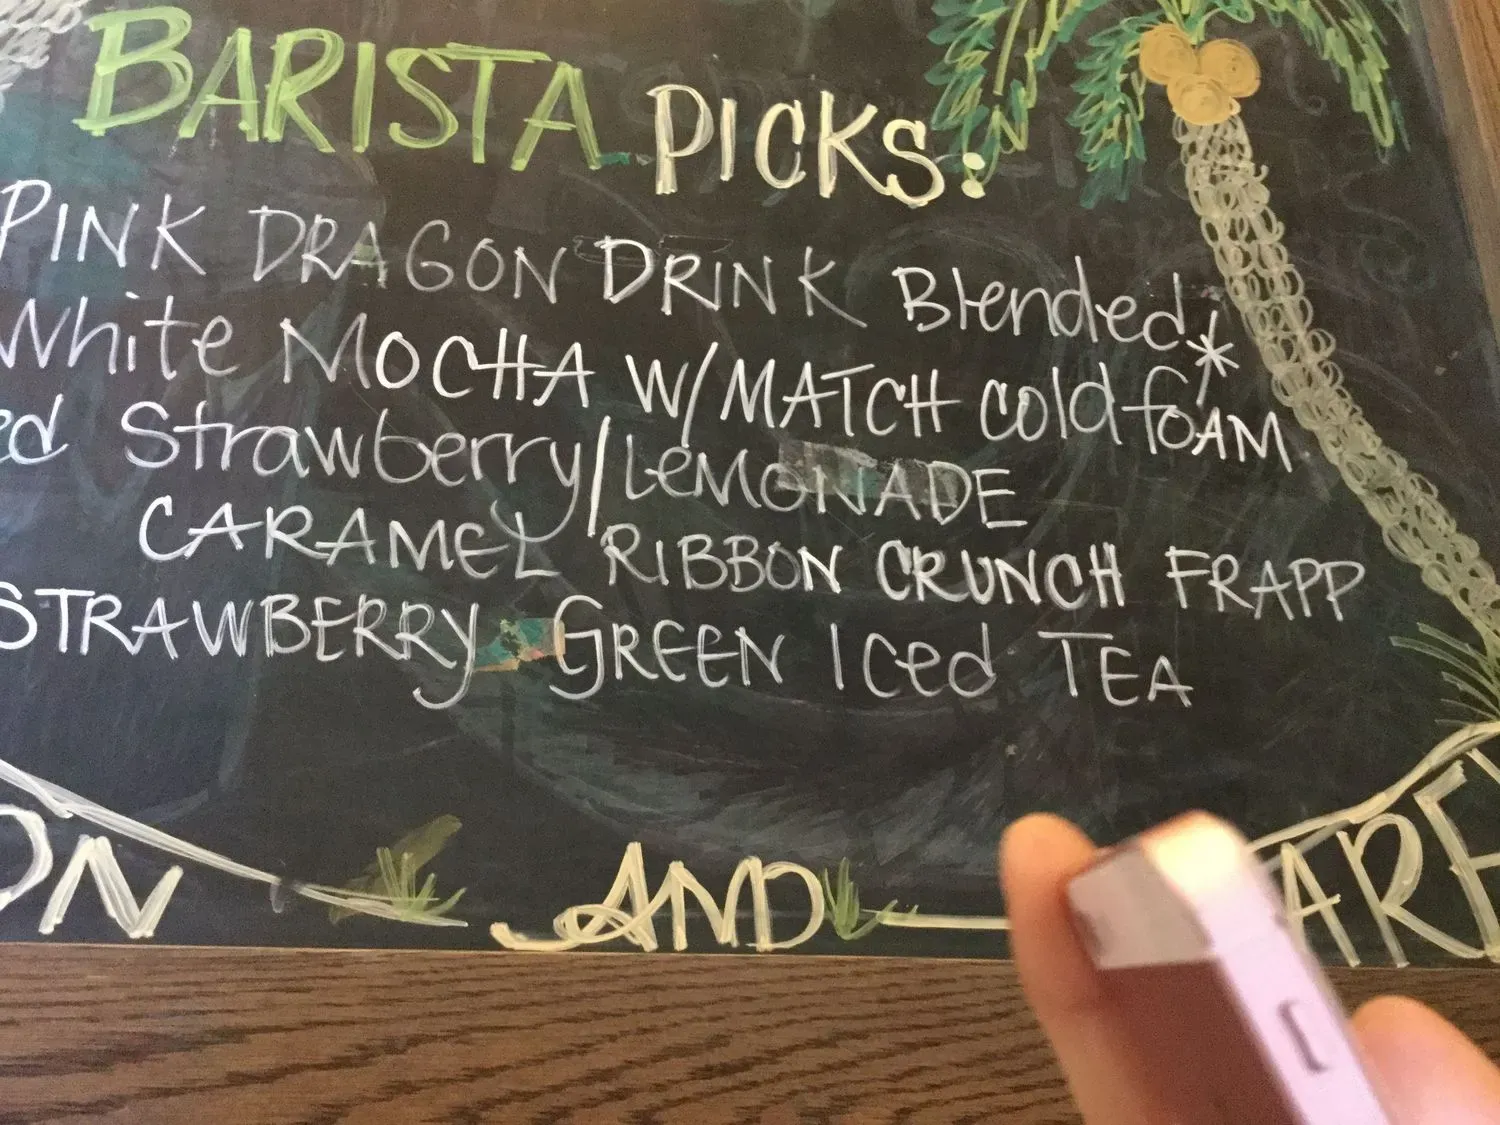 BARISTA PICKS:
PINK DRAGON DRINK Blended*
White MOCHA W/MATCH coldfoAM
ed Strawberry/LeMONADE
CARAMEL RIBBON CRUNCH FRAPP
STRAWBERRY GREEN Iced TEA
ON AND ARE